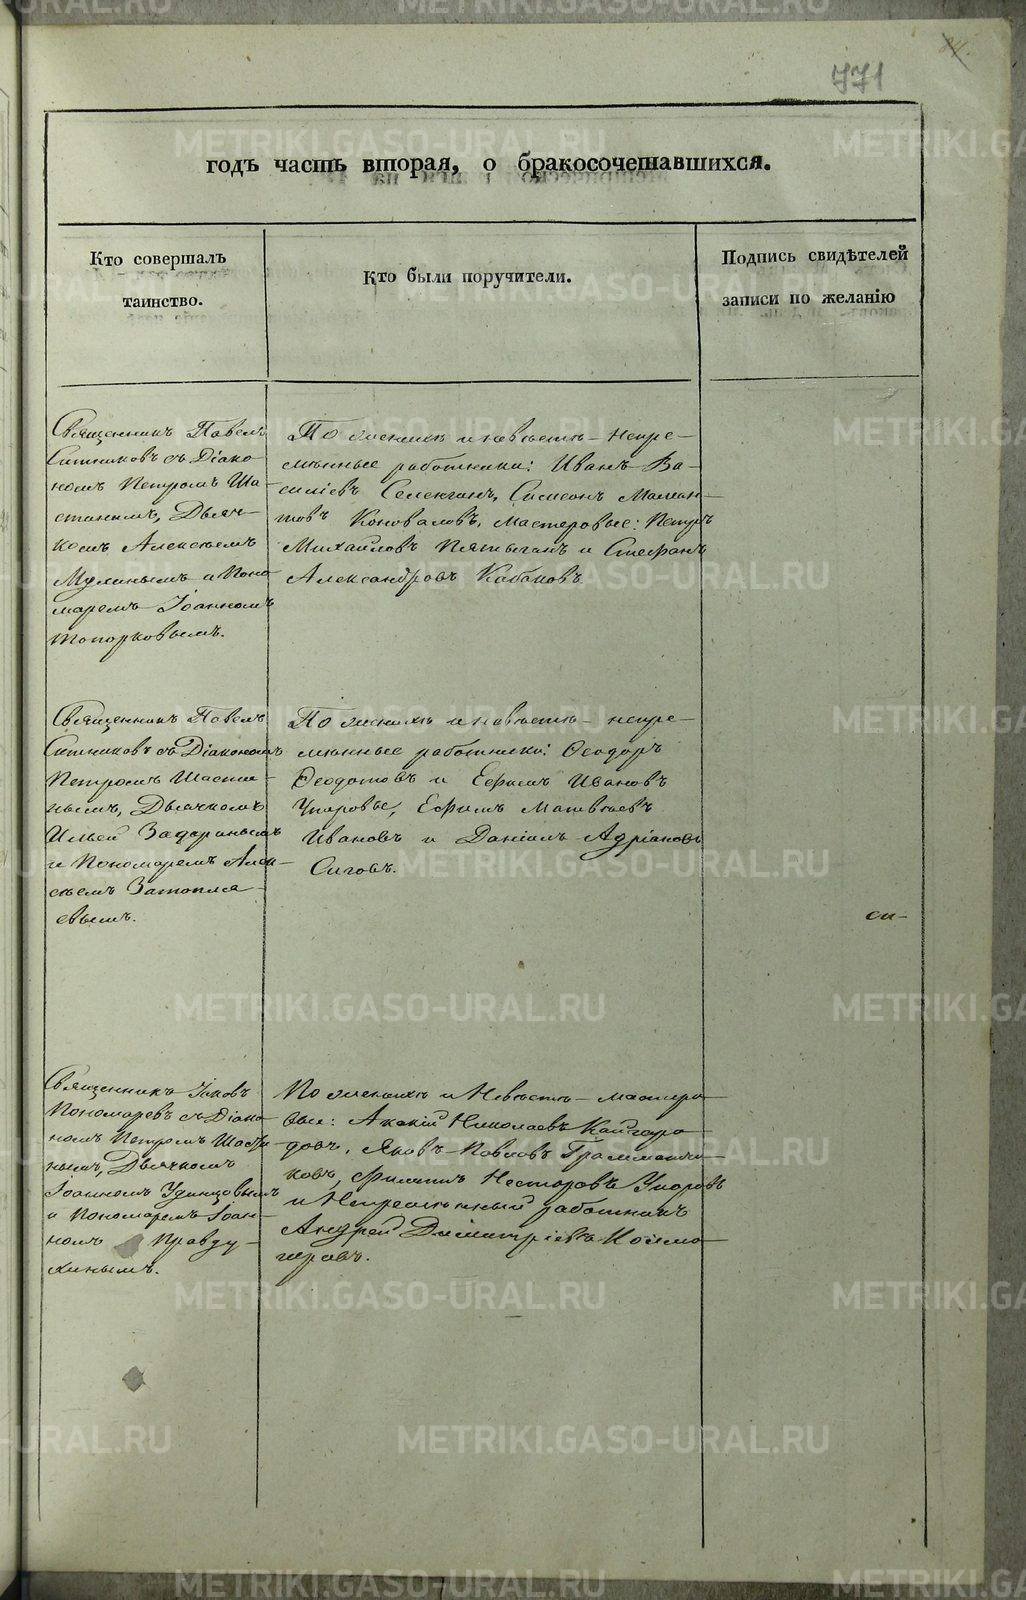 84.
771
годъ часть вторая, о бракосочетавшихся.
Кто совершалъ
таинство.
Кто были поручители.
Подпись свидѣтелей
записи по желанію
Священникъ Павелъ
Ситниковъ съ Діако-
номъ Петромъ Ша-
стинымъ, Дьяч-
комъ Алексѣемъ
и Поно-
маремъ Іоанномъ
Топорковымъ.
По женихѣ и невѣстѣ – непре-
мѣнные работники: Иванъ Ва-
силіевъ Селенгинъ, Симеонъ Маман-
товъ Коноваловъ, мастеровые: Петръ
Михайловъ Пятыгинъ и Стефанъ
Александровъ Кабаковъ.
Священникъ Павелъ
Ситниковъ съ Діакономъ
Петромъ Шасти-
нымъ, Дьячкомъ
Ильей
и Пономаремъ Алек-
сѣемъ Затопля-
евымъ.
По женихѣ и невѣстѣ – непре-
мѣнные работники: Ѳеодоръ
Ѳеодотовъ и Ефимъ Ивановъ
Упоровы, Ефимъ Матвѣевъ
Ивановъ и Даніилъ Адріановъ
Сиговъ.
си-
Священникъ Іаковъ
Пономаревъ съ Діако-
номъ Петромъ Шасти-
нымъ, Дьячкомъ
Іоанномъ Удинцовымъ
и Пономаремъ Іоан-
номъ Правду-
хинымъ.
По женихѣ и Невѣстѣ – мастеро-
вые: Акакій Николаевъ Кайгоро-
довъ, Яковъ Павловъ Грамматчи-
ковъ, Филиппъ Несторовъ Упоровъ
и Непремѣнный работникъ
Андрей Димитріевъ Колмо-
горовъ.
METRIKI.GASO-URAL.RU